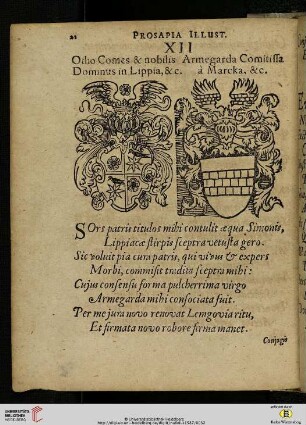 22 PROSAPIA ILLUST.
XII
Otho Comes & nobilis Armegarda Comitissa
Dominus in Lippia, & c. à Marcka. &c.
SOrs patrii titulos mihi contulit æqua Simonis,
Lippiacæ stirpis sceptra vetusta gero.
Sic voluit pia cura patris, qui vivus & expers
Morbi, commisit tradita sceptra mihi:
Cujus consensu forma pulcherrima virgo
Armegarda mihi consociata fuit.
Per me jura novo renovat Lemgovia ritu,
Et firmata novo robore firma manet.
Conjugis
UNIVERSITÄTS-
BIBLIOTHEK
HEIDELBERG
© Universitätsbibliothek Heidelberg